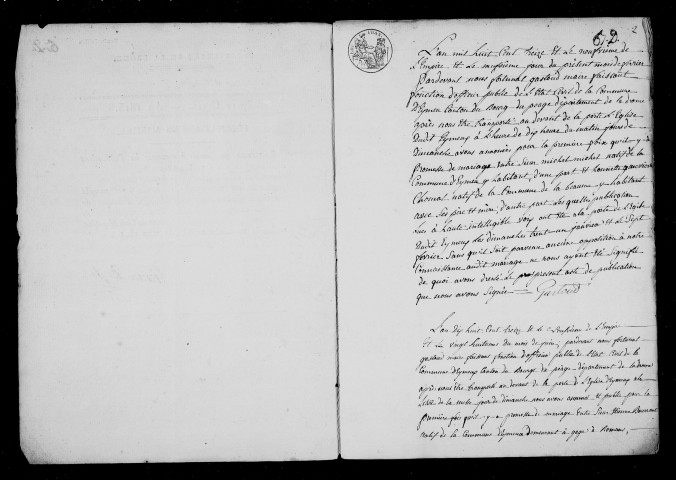 62
2
L'an mil huit Cent treize et le neufvieme de
L'Empire et le septieme jour du présent mois de fevrier
Pardevant nous fortunat gastoud maire faissant
fonction d'officier public de l'Etat Civil de la Commune
d'Eymeu Canton du Bourg du péage département de la drome
après nous être transporté au devant de la porte de l'Eglise
dudit Eymeux à l'heure de dix heure du matin jour de
dimanche avons annoncés pour la première fois qu'il y a
promesse de mariage entre sieur michel michel natif de la
Commune d'Eymeu y habitant, d'une part et
Chonal natif de la Commune de la beaume y habitant
avec ses père et mère, d'autre part. Les quelles publication
lues à haute intelligible voix ont été à la porte de
dudit Eymeux les dimanches trente un janvier et le sept
fevrier sans qu'il soit parvenu aucune opposition à notre
Connaissance audit mariage ne nous ayant été signifié
de quoi avons dressé le present acte de publication
que nous avons signée Gastoud
L'an dix huit Cent treize et le neufvieme de l'Empire
et le vingt huitieme du mois de juin, pardevant nous fortunat
gastoud maire faissant fonction d'officier public de l'Etat Civil de la
Commune d'Eymeux Canton du Bourg du péage département de la drome
après nous être transporté au devant de la porte de l'Eglise d'Eymeux à la
de la messe jour de dimanche nous avons annoncé et publié pour la
première fois qu'il y a promesse de mariage entre sieur
natif de la Commune d'Eymeux demeurant à gage à Romans,